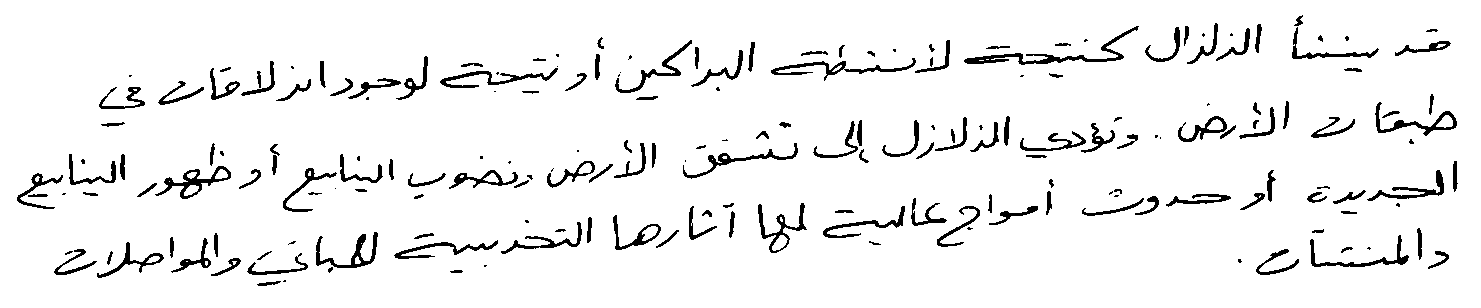 قد ينشأ الزلزال كنتيجة لأنشطة البراكين أو نتيجة لوجود انزلاقات في
طبقات الأرض. وتؤدي الزلازل إلى تشقق الأرض ونضوب الينابيع أو ظهور الينابيع
الجديدة أو حدوث أمواج عالية لها آثارها التخريبية للمباني والمواصلات
والمنشآت.